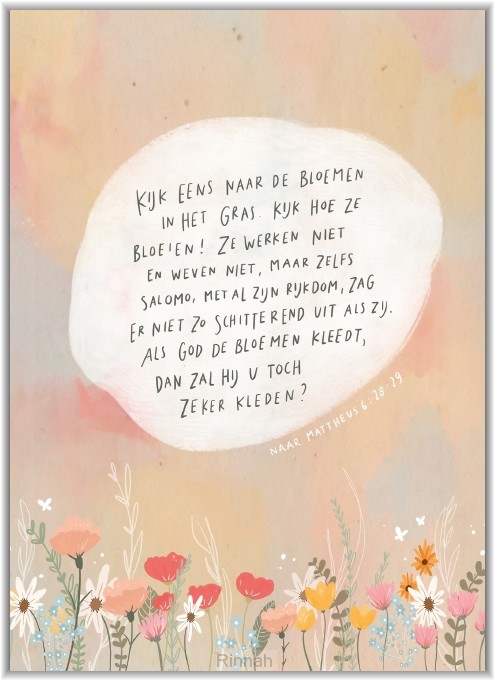 KIJK EENS NAAR DE BLOEMEN
IN HET GRAS. KIJK HOE ZE
BLOEIEN! ZE WERKEN NIET
EN WEVEN NIET, MAAR ZELFS
SALOMO, MET AL ZIJN RIJKDOM, ZAG
ER NIET ZO SCHITTEREND UIT ALS ZIJ.
ALS GOD DE BLOEMEN KLEEDT,
DAN ZAL HIJ U TOCH
ZEKER KLEDEN?
NAAR MATTHEUS 6:28-29
Rinnah